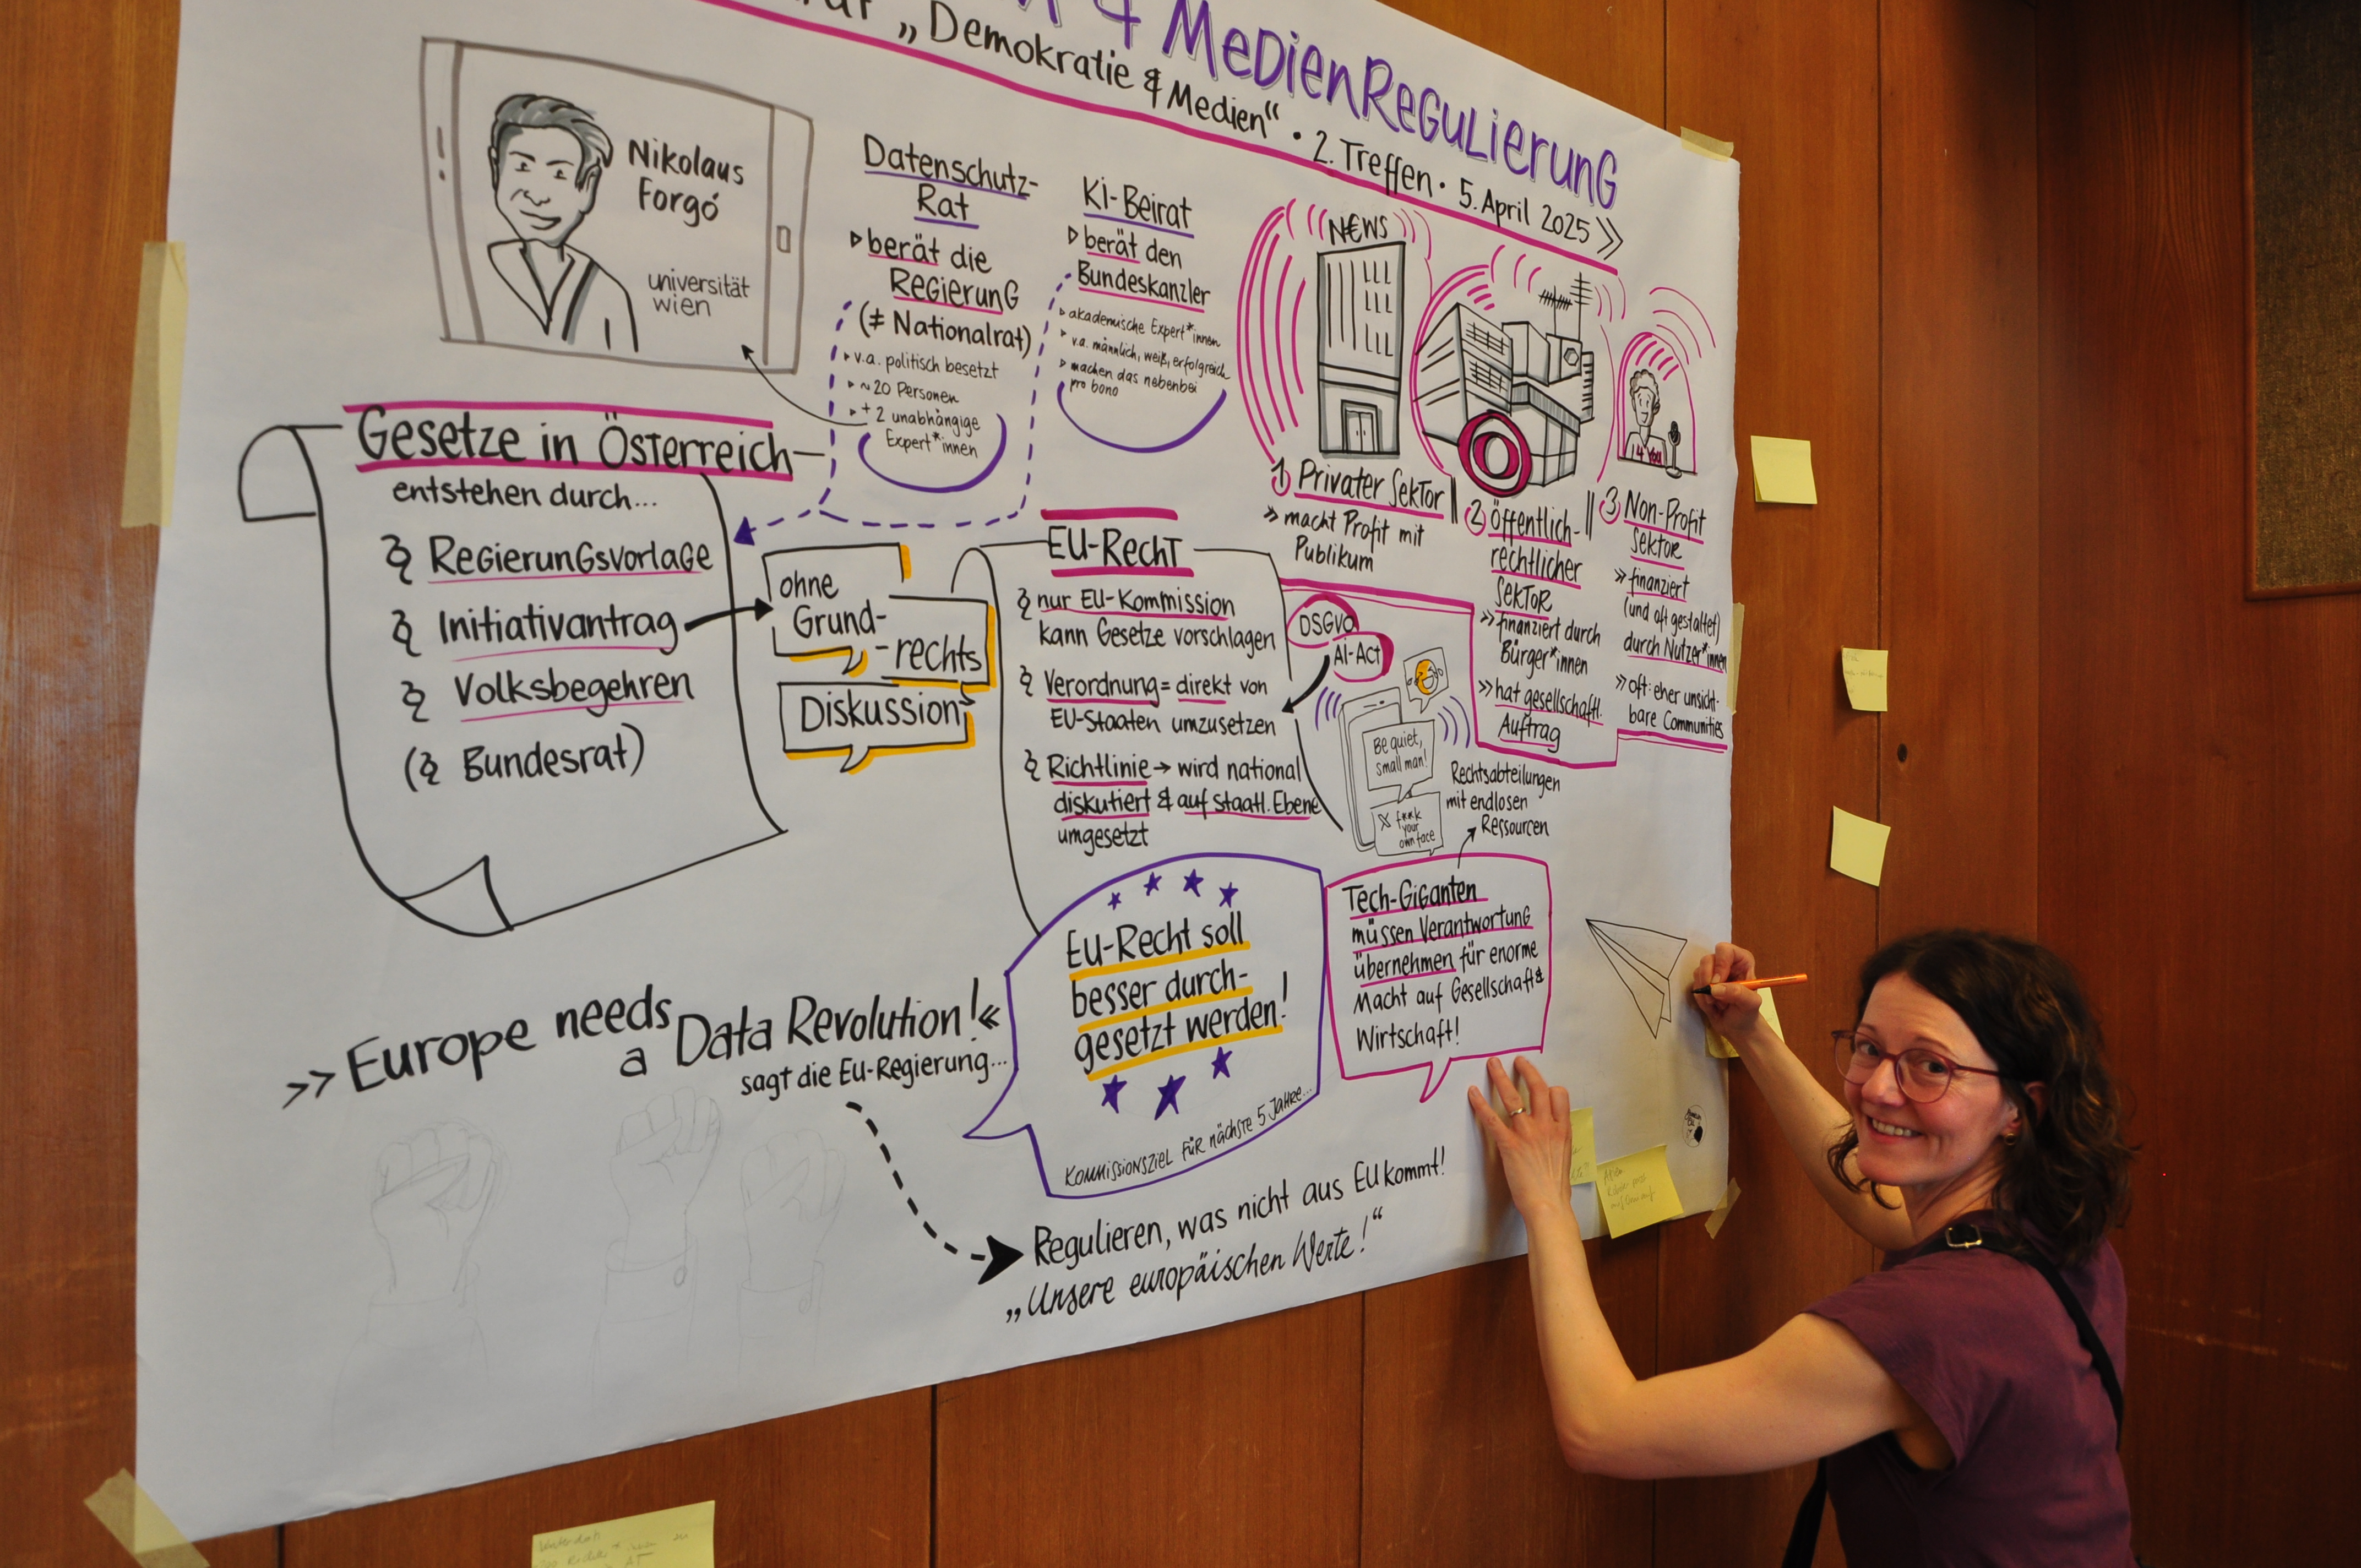 & MedienRegulierung
„Demokratie & Medien“ • 2. Treffen • 5. April 2025 »
Nikolaus
Forgó
universität
wien
Datenschutz-
Rat
berät die
Regierung
(≠ Nationalrat)
v.a. politisch besetzt
~20 Personen
+ 2 unabhängige
Expert*innen
KI-Beirat
berät den
Bundeskanzler
akademische Expert*innen
v.a. männlich, weiß, erfolgreich
machen das nebenbei
pro bono
N€WS
4 You
1 Privater Sektor
» macht Profit mit
Publikum
2 öffentlich-
rechtlicher
Sektor
» finanziert durch
Bürger*innen
» hat gesellschaftl.
Auftrag
3 Non-Profit
Sektor
» finanziert
(und oft gestaltet)
durch Nutzer*innen
» oft: eher unsicht-
bare Communities
Gesetze in Österreich
entstehen durch...
§ Regierungsvorlage
§ Initiativantrag
§ Volksbegehren
(§ Bundesrat)
ohne
Grund-
-rechts
Diskussion
EU-Recht
§ nur EU-Kommission
kann Gesetze vorschlagen
§ Verordnung = direkt von
EU-Staaten umzusetzen
§ Richtlinie → wird national
diskutiert & auf staatl. Ebene
umgesetzt
DSGVO
AI-Act
Be quiet,
small man!
X f**k
your
own face
Rechtsabteilungen
mit endlosen
Ressourcen
Tech-Giganten
müssen Verantwortung
übernehmen für enorme
Macht auf Gesellschaft &
Wirtschaft!
EU-Recht soll
besser durch-
gesetzt werden!
Kommissionsziel für nächste 5 Jahre...
»Europe needs
a Data Revolution!«
sagt die EU-Regierung...
Regulieren, was nicht aus EU kommt!
„Unsere europäischen Werte!“